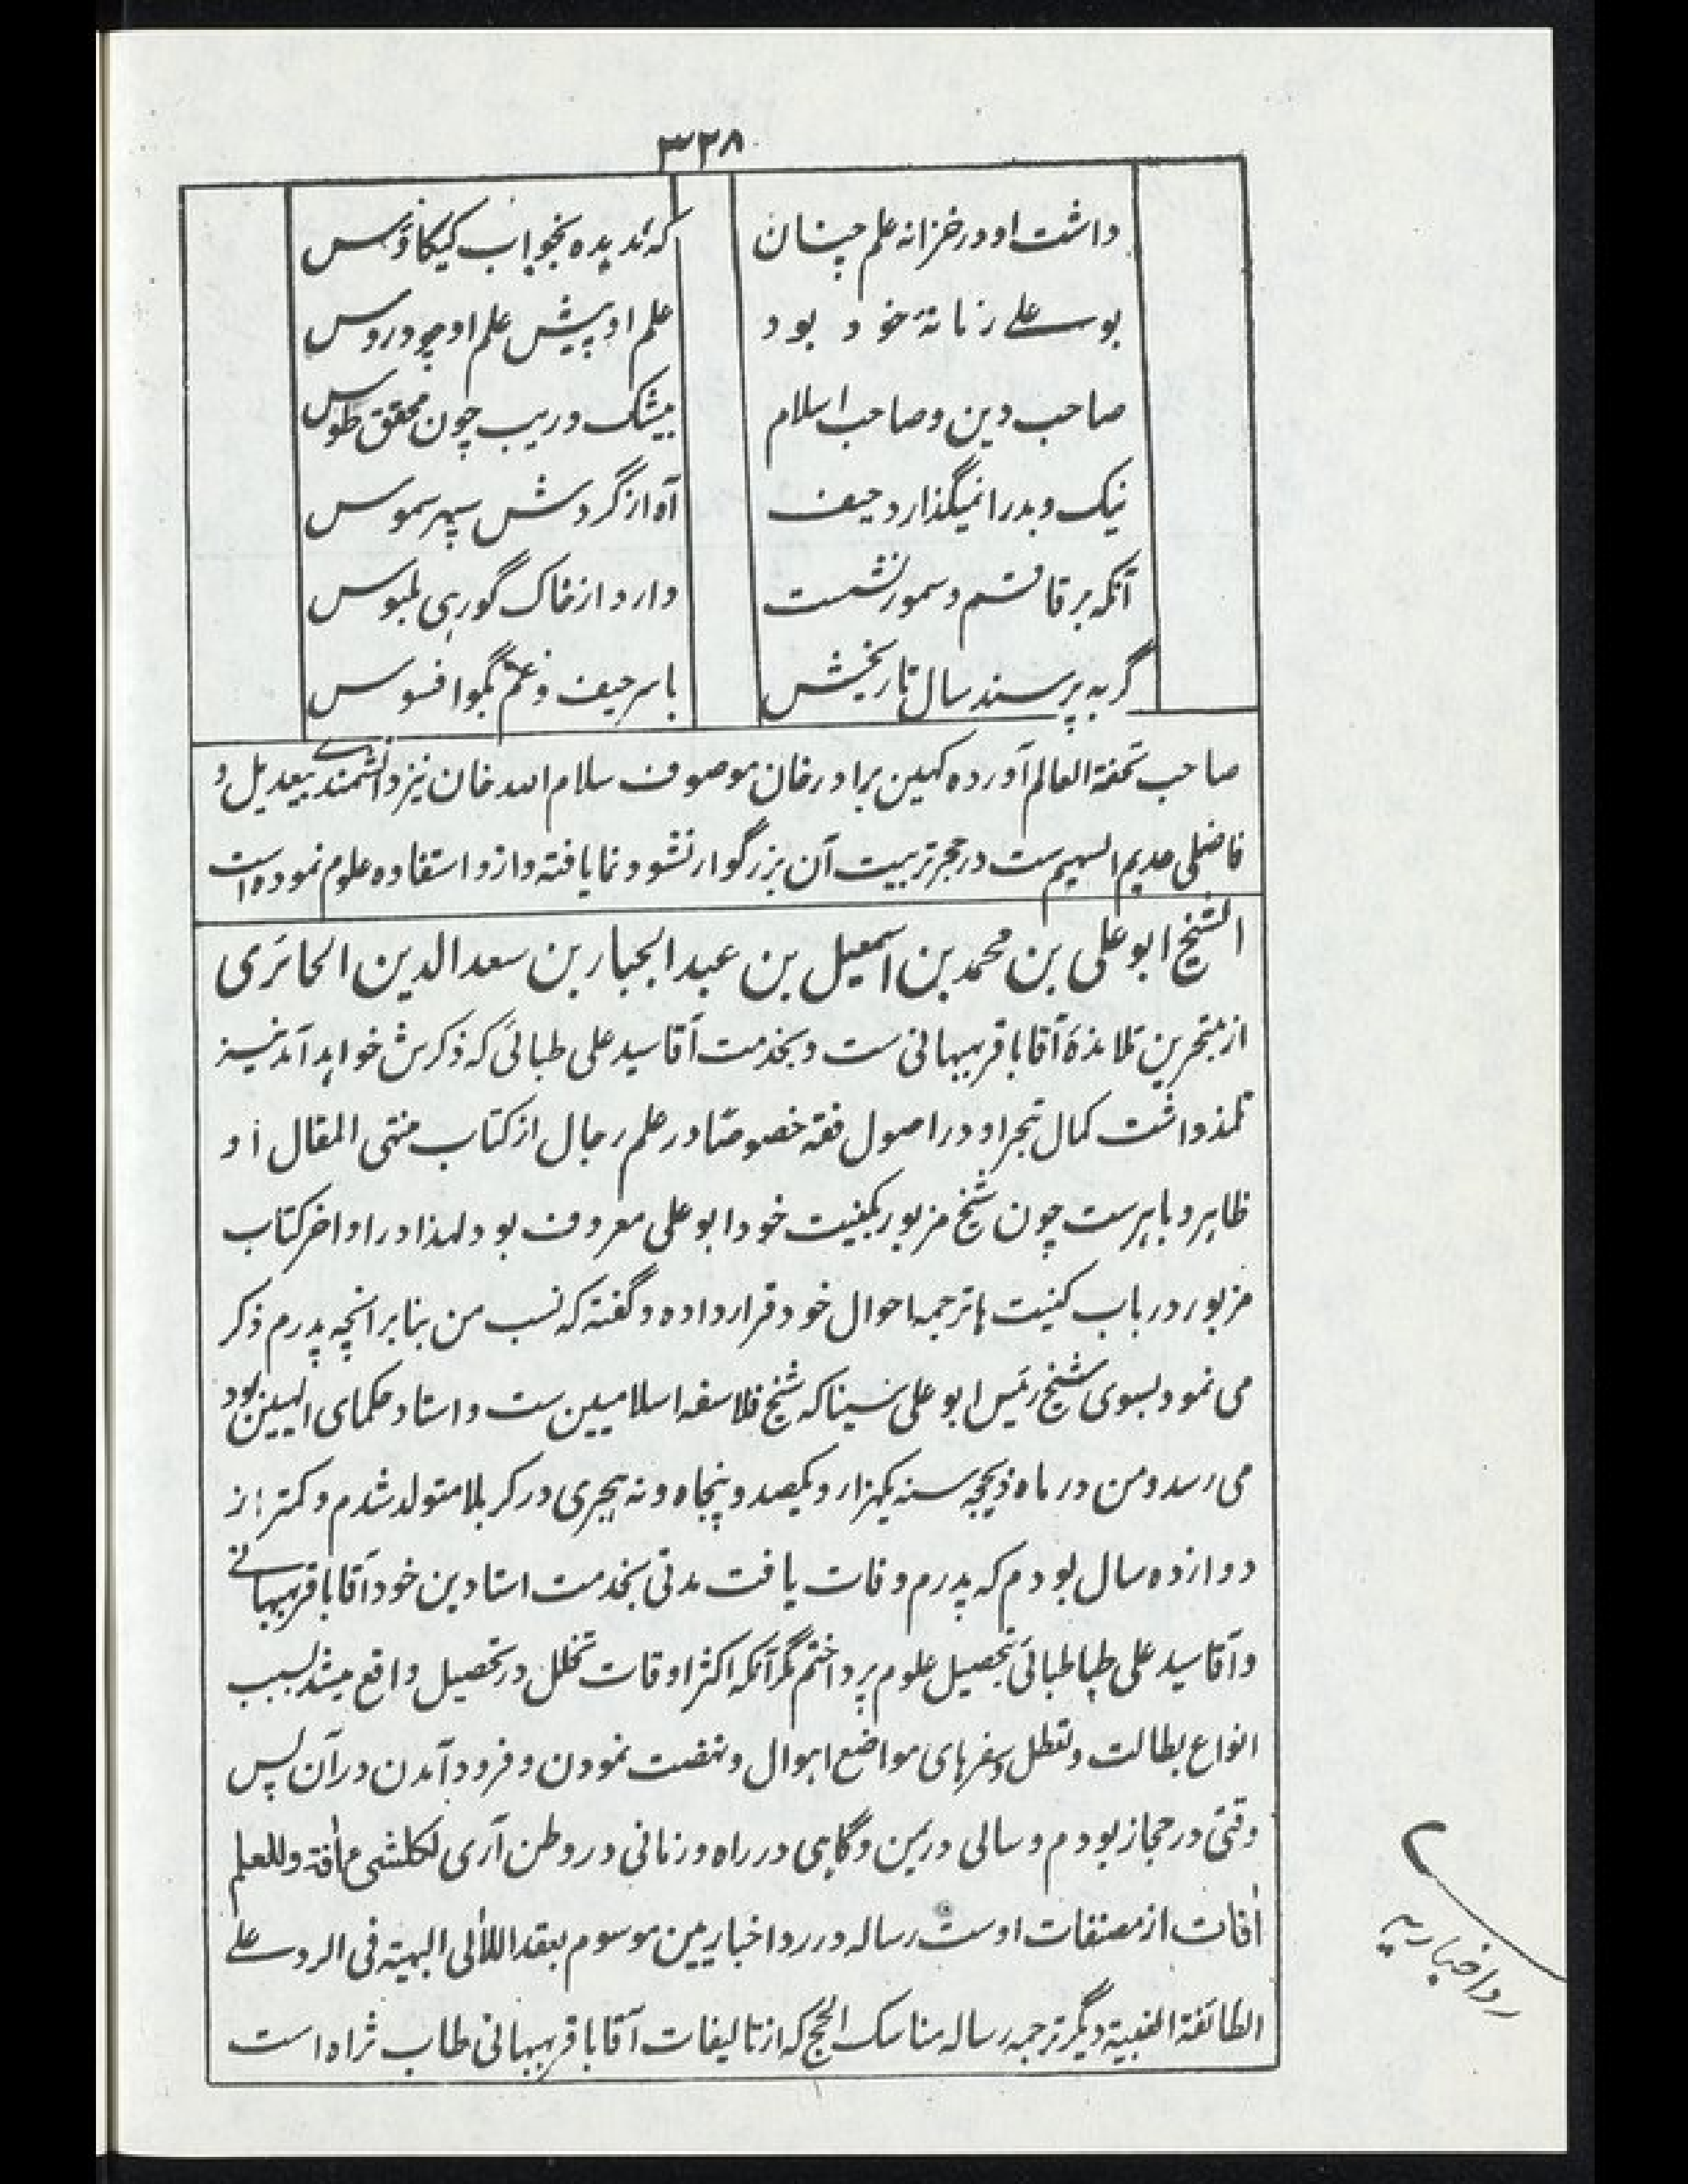 ۳۲۸
داشت او در خزانه علم چنان که ندیده بخواب کیکاؤس
بوعلے زمانۀ خود بود علم او پیش علم او چو دروس
صاحب دین و صاحب اسلام بیشک و ریب چون محقق طوس
نیک و بد را نمیگذارد حیف آه از گردش سپهر سموس
آنکه بر قاقم و سمور نشست دارد از خاک گور پی ملبوس
گر به پرسند سال تاریخش با سر حیف و غم بگو افسوس
صاحب تحفة العالم آورده کهین برادر خان موصوف سلام الله خان نیز دانشمندے بیعدیل و
فاضلی عدیم السهیم ست در حجر تربیت آن بزرگوار نشو و نما یافته و ازو استفاده علوم نموده است
الشیخ ابو علی بن محمد بن اسمعیل بن عبد الجبار بن سعد الدین الحائری
از متبحرین تلامذۀ آقا باقر بهبهانی ست و بخدمت آقا سید علی طبائی که ذکرش خواهد آمد نیز
تلمذ داشت کمال تبحر او در اصول فقه خصوصًا در علم رجال از کتاب منتهی المقال او
ظاهر و باهرست چون شیخ مزبور بکنیت خود ابو علی معروف بود لهذا در اواخر کتاب
مزبور در باب کنیت ها ترجمه احوال خود قرار داده و گفته که نسب من بنابر انچه پدرم ذکر
می نمود بسوی شیخ رئیس ابو علی سینا که شیخ فلاسفه اسلامیین ست و استاد حکمای الهیین بود
می رسد و من در ماه ذیحجه سنه یکهزار و یکصد و پنجاه و نه هجری در کربلا متولد شدم و کمتر از
دوازده سال بودم که پدرم وفات یافت مدتی بخدمت استادین خود آقا باقر بهبهانے
و آقا سید علی طباطبائی بتحصیل علوم پرداختم مگر آنکه اکثر اوقات تخلل در تحصیل واقع میشد بسبب
انواع بطالت و تعطل و سفرهای مواضع اهوال و نهضت نمودن و فرود آمدن در آن پس
وقتی در حجاز بودم و سالی در یمن و گاهی در راه و زمانی در وطن آری لکلشی مآفة و للعلم
اٰفات از مصنفات اوست رساله در رد اخباریین موسوم بعقد اللاٰلی البهیة فی الرد علے
الطائفة الغبیة دیگر ترجمه رساله مناسک الحج که از تالیفات آقا باقر بهبهانی طاب ثراه است
رد اخباریه